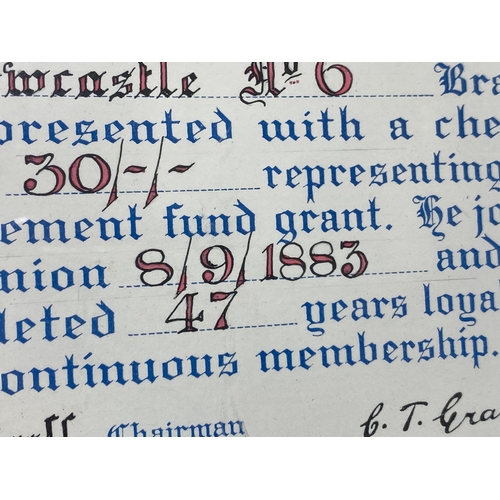 wcastle No 6 Bra
presented with a che
30/-/- representing
ement fund grant. He jo
nion 8/9/1883 and
leted 47 years loya
ontinuous membership.
Chairman C. T. Gra